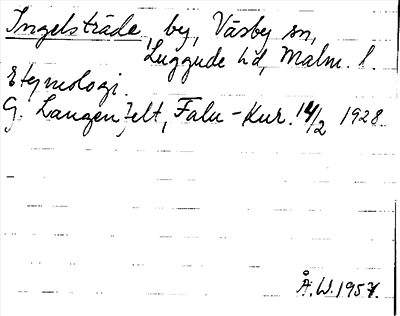 Ingelsträde, by, Väsby sn,
Luggude hd, Malm. l.
Etymologi.
G. Langenfelt, Falu-Kur. 14/2 1928.
Å.W. 1957.